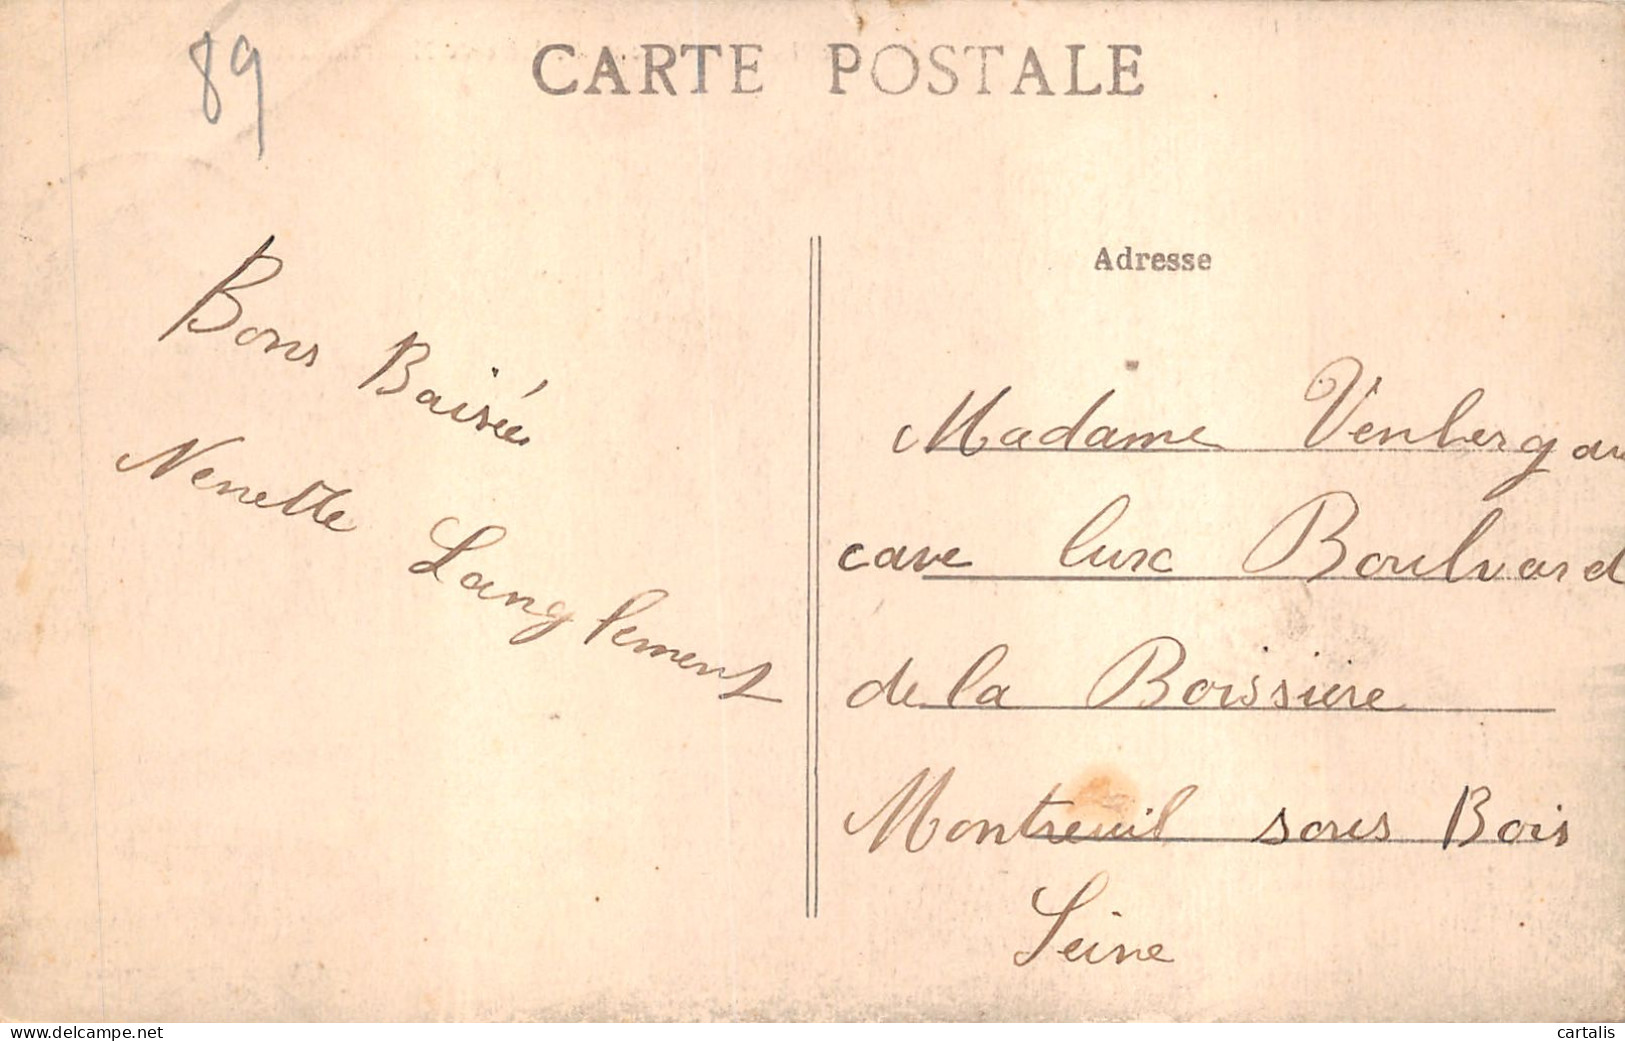 89
CARTE POSTALE
Bons Baisées
Nenette Langlement
Adresse
Madame Venberg
cave luxe Boulvard
de la Boissiere
Montreuil sous Bois
Seine
www.delcampe.net
cartalis